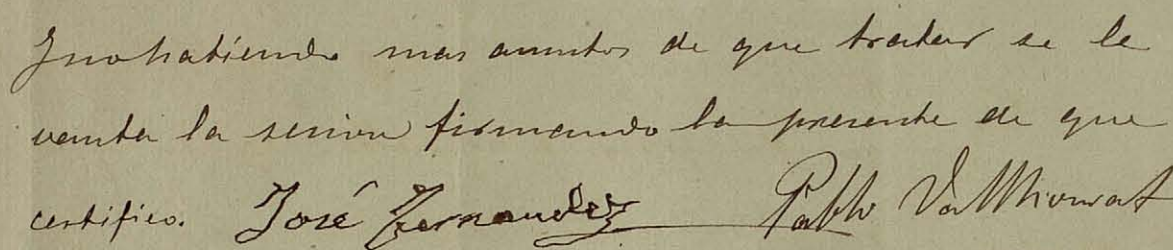 Y no habiendo mas asuntos de que tratar se le
vanta la sesion firmando la presente de que
certifico. José Fernandez Pablo